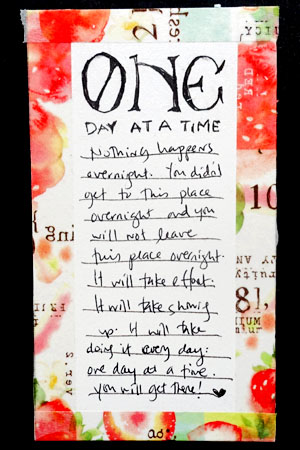 ONE
DAY AT A TIME
Nothing happens
overnight. You didn't
get to this place
overnight and you
will not leave
this place overnight.
It will take effort.
It will take showing
up. It will take
doing it every day.
one day at a time.
you will get there!
10
ver.2